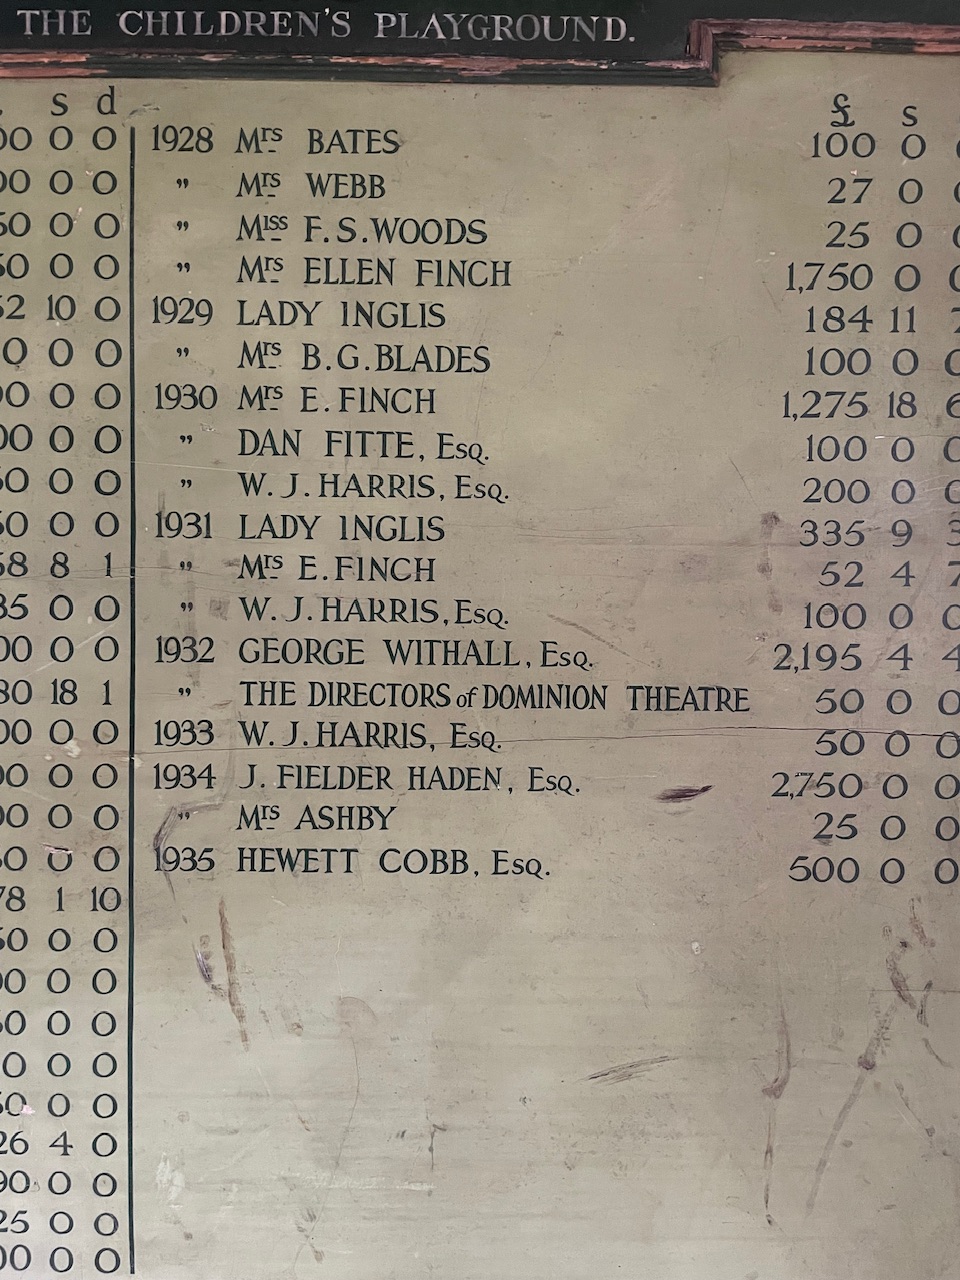 THE CHILDREN'S PLAYGROUND.
s d
0 0 0
0 0 0
0 0 0
0 0 0
2 10 0
0 0 0
0 0 0
0 0 0
0 0 0
0 0 0
8 8 1
5 0 0
0 0 0
0 18 1
0 0 0
0 0 0
0 0 0
0 0 0
8 1 10
0 0 0
0 0 0
0 0 0
0 0 0
0 0 0
6 4 0
0 0 0
5 0 0
0 0 0
£ s
1928 Mrs BATES 100 0
" Mrs WEBB 27 0
" Miss F.S.WOODS 25 0
" Mrs ELLEN FINCH 1,750 0
1929 LADY INGLIS 184 11 7
" Mrs B.G.BLADES 100 0 0
1930 Mrs E.FINCH 1,275 18 6
" DAN FITTE, Esq. 100 0 0
" W.J.HARRIS, Esq. 200 0 0
1931 LADY INGLIS 335 9 3
" Mrs E.FINCH 52 4 7
" W.J.HARRIS, Esq. 100 0 0
1932 GEORGE WITHALL, Esq. 2,195 4 4
" THE DIRECTORS of DOMINION THEATRE 50 0 0
1933 W.J.HARRIS, Esq. 50 0 0
1934 J. FIELDER HADEN, Esq. 2,750 0 0
" Mrs ASHBY 25 0 0
1935 HEWETT COBB, Esq. 500 0 0